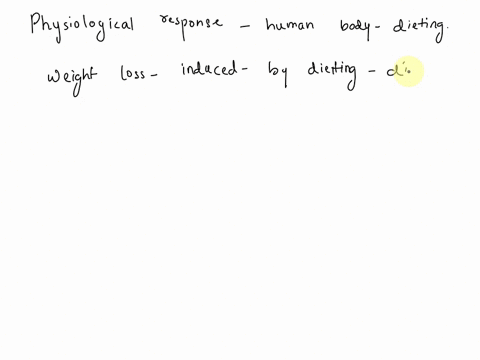 Physiological response - human body - dieting.
Weight loss - induced - by dieting - di